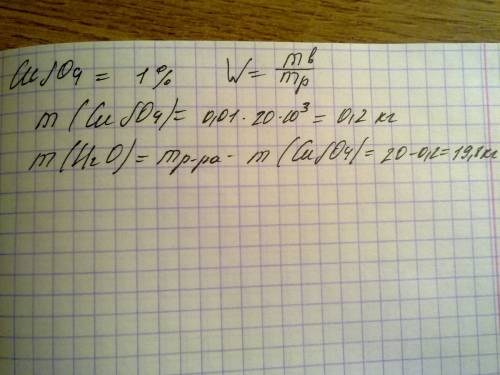 CuSO4 = 1% W = mв/mр
m (CuSO4) = 0,01 · 20 · 10³ = 0,2 кг
m (H2O) = mр-ра - m (CuSO4) = 20-0,2 = 19,8 кг